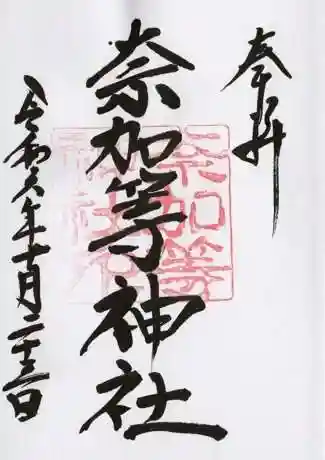 奉拝
奈加等神社
奈加等
神社
令和六年十月二十三日